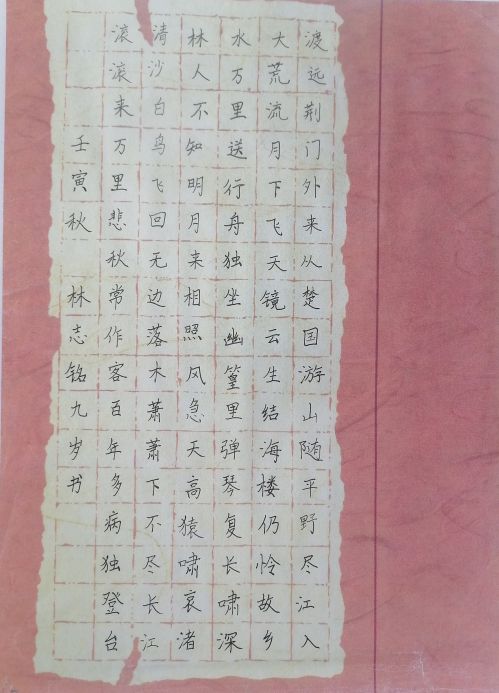 渡远荆门外来从楚国游山随平野尽江入
大荒流月下飞天镜云生结海楼仍怜故乡
水万里送行舟独坐幽篁里弹琴复长啸深
林人不知明月来相照风急天高猿啸哀渚
清沙白鸟飞回无边落木萧萧下不尽长江
滚滚来万里悲秋常作客百年多病独登台
壬寅秋 林志铭九岁书